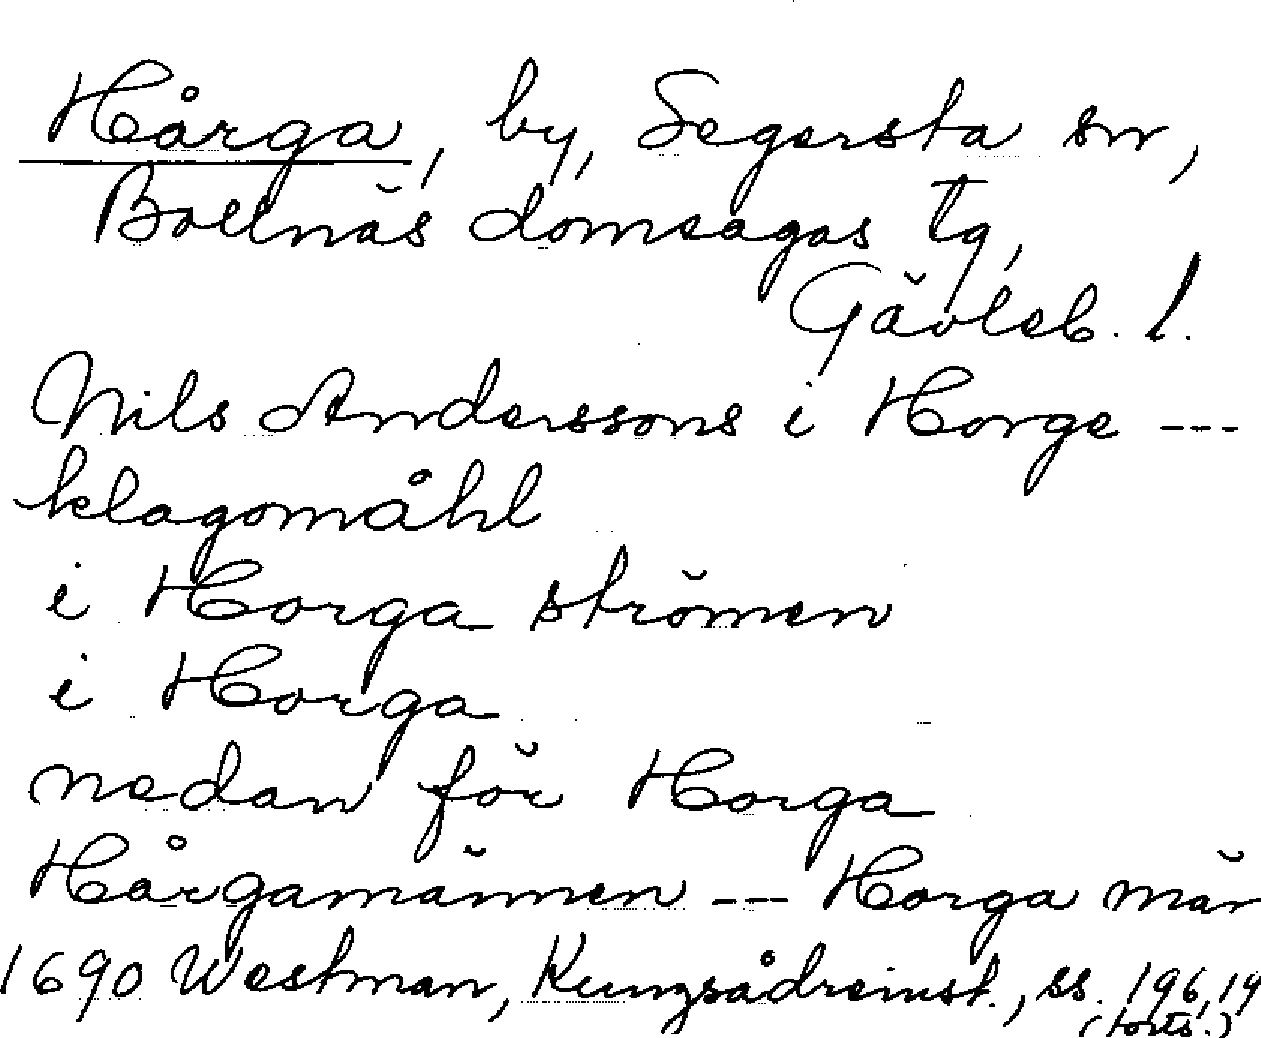 Hårga, by, Segersta sn,
Bollnäs domsagas tg,
Gävleb. l.
Nils Anderssons i Horge ---
klagomåhl
i Horga strömen
i Horga
nedan för Horga
Hårgamännen --- Horga män
1690 Westman, Kungsådreinst., ss. 196, 19
(forts.)